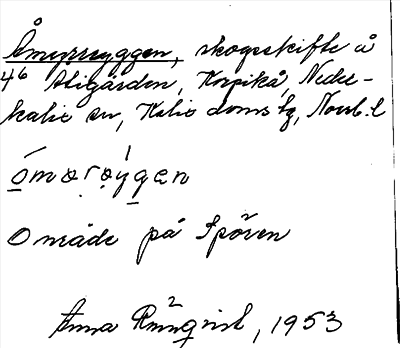 Åmyrryggen, skogsskifte å
4⁶ Stigården, Korpikå, Neder-
kalix sn, Kalix doms lg, Norrb. l
Område på Spören
Anna Rönnqvist, 1953